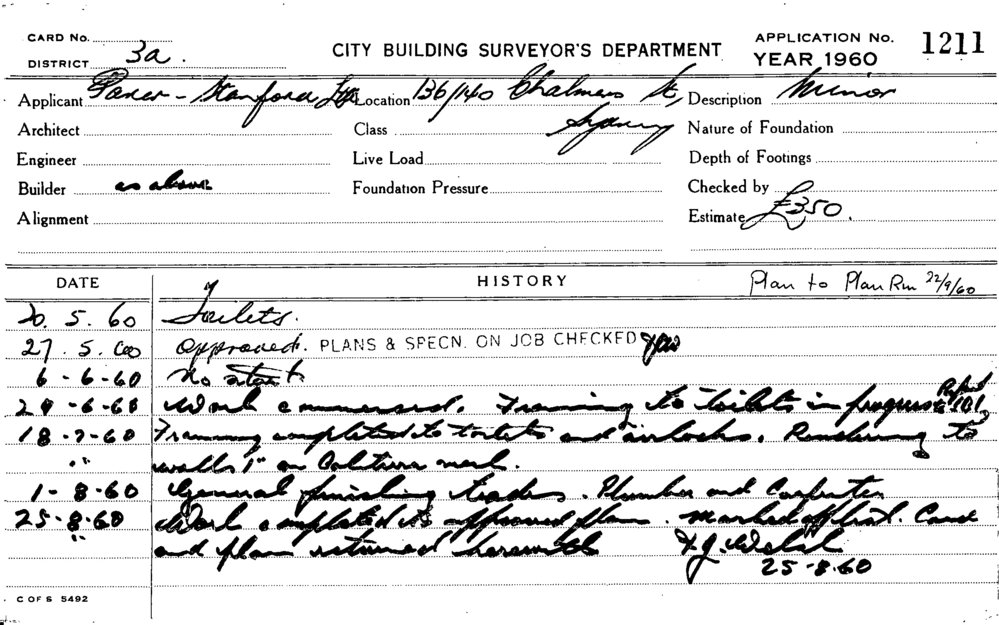 CARD No.
DISTRICT 3a.
CITY BUILDING SURVEYOR'S DEPARTMENT
APPLICATION No. 1211
YEAR 1960
Applicant - Stanford Location 136/140 Chalmers St, Description Minor
Architect Class Sydney Nature of Foundation
Engineer Live Load Depth of Footings
Builder as above Foundation Pressure Checked by
Alignment Estimate £350.
DATE HISTORY Plan to Plan Rm 22/9/60
20. 5. 60 Toilets.
27. 5. 60 approved. PLANS & SPECN. ON JOB CHECKED
6-6-60 No start
-6-60 Work commenced. Framing to toilets in progress
18-7-60 Framing completed to toilets and airlocks. Rendering to
" walls 1" on mesh.
1-8-60 General finishing trades. Plumber and Carpenter
25-8-60 Work completed as approved plan. Marked off list. Card
" and plan returned herewith
25-8-60
C OF S 5492